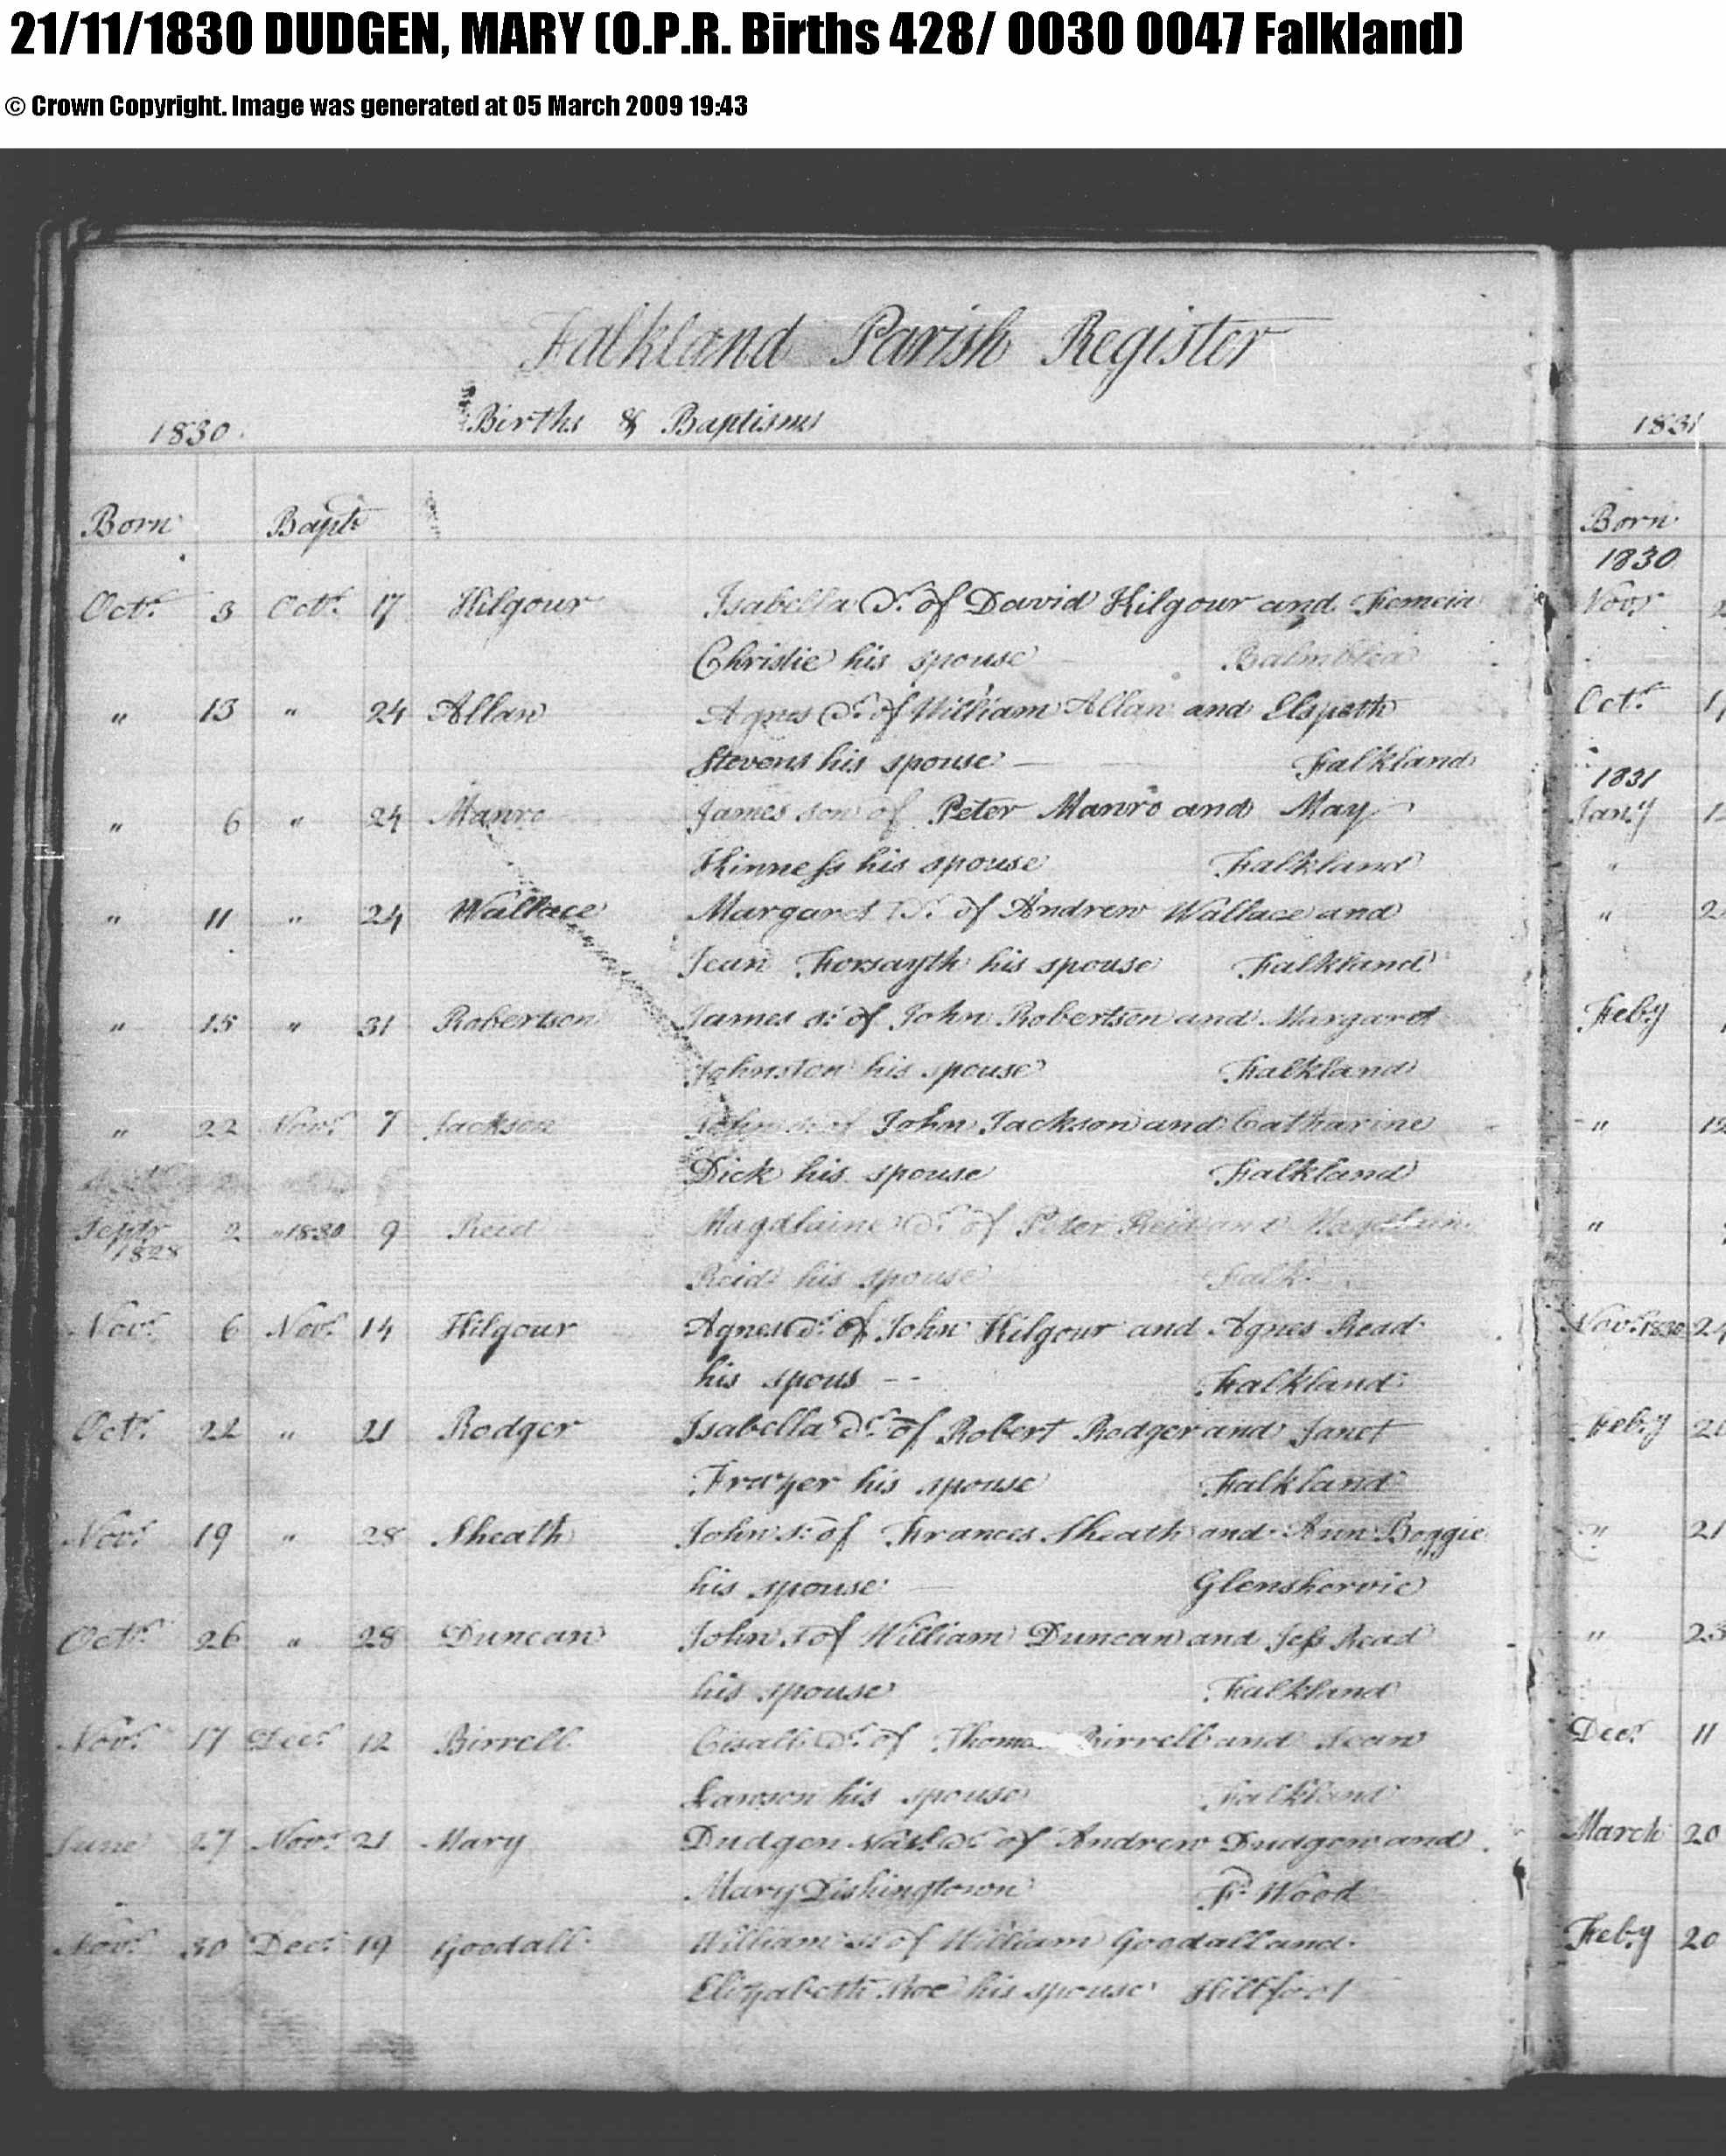 21/11/1830 DUDGEN, MARY (O.P.R. Births 428/ 0030 0047 Falkland)
© Crown Copyright. Image was generated at 05 March 2009 19:43
Falkland Parish Register
1830. Births & Baptisms
Born Bapt
Octr 3 Octr 17 Kilgour Isabella Dr of David Kilgour and Femein
Christie his spouse Balmblea
" 13 " 24 Allan Agnes Dr of William Allan and Elspeth
Stevens his spouse — Falkland
" 6 " 24 Manro James son of Peter Manro and May
Kinness his spouse Falkland
" 11 " 24 Wallace Margaret Dr of Andrew Wallace and
Jean Forsayth his spouse Falkland
" 15 " 31 Robertson James s: of John Robertson and Margaret
Johnston his spouse Falkland
" 22 Novr 7 Jackson John s: of John Jackson and Catharine
Dick his spouse Falkland
Septr 2 " 1830 9 Reid Magdlaine Dr of Peter Reid and
1828
Reid his spouse Falk.
Novr 6 Novr 14 Kilgour Agnes Dr of John Kilgour and Agnes Read
his spous -- Falkland
Octr 22 " 21 Rodger Isabella Dr of Robert Rodger and Janet
Frazer his spouse Falkland
Novr 19 " 28 Sheath John s: of Frances Sheath and Ann Boggie
his spouse — Glenshervie
Octr 26 " 28 Duncan John s of William Duncan and Jess Read
his spouse Falkland
Novr 17 Decr 12 Birrell Cisall Dr of Thoma Birrell and Jean
Lawson his spouse Falkland
June 27 Novr 21 Mary Dudgen Natl Dr of Andrew Dudgen and
Mary Dishingtown Fr Wood
Novr 30 Decr 19 Goodall William s: of William Goodall and
Elizabeth Roe his spouse Hillfoot
1831
Born
1830
Novr
Octr
1831
Jany
"
" 2
Feby
" 12
"
Novr 1830 24
Feby 20
" 21
" 23
Decr 11
March 20
Feby 20